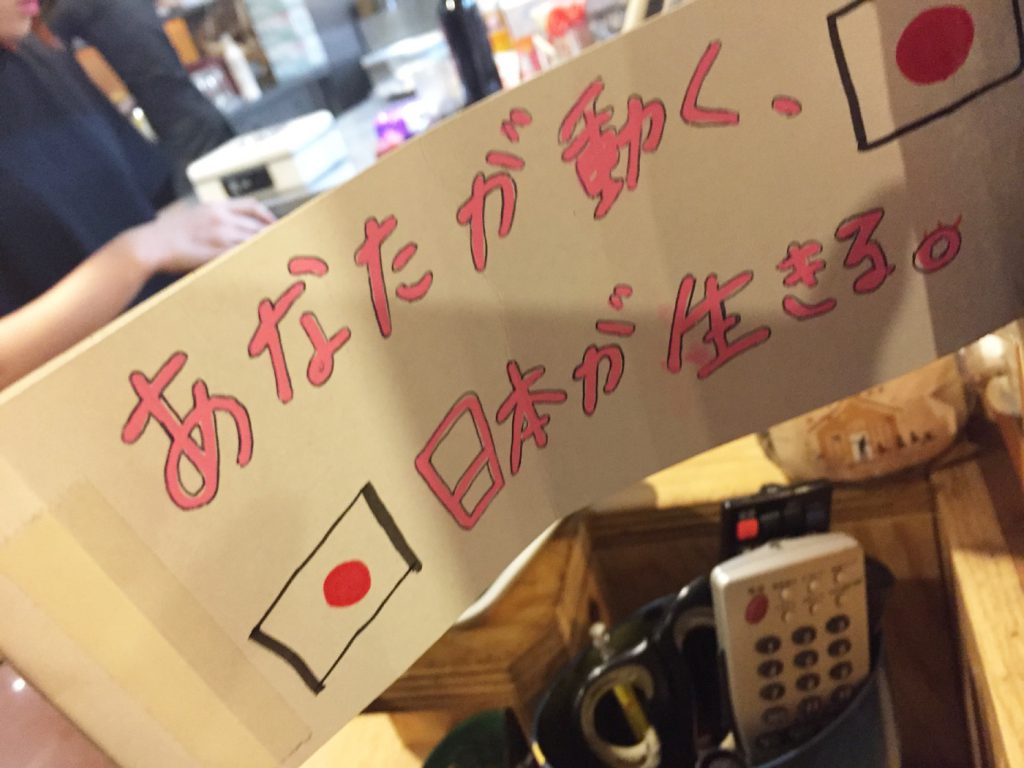 あなたが動く、
日本が生きる。